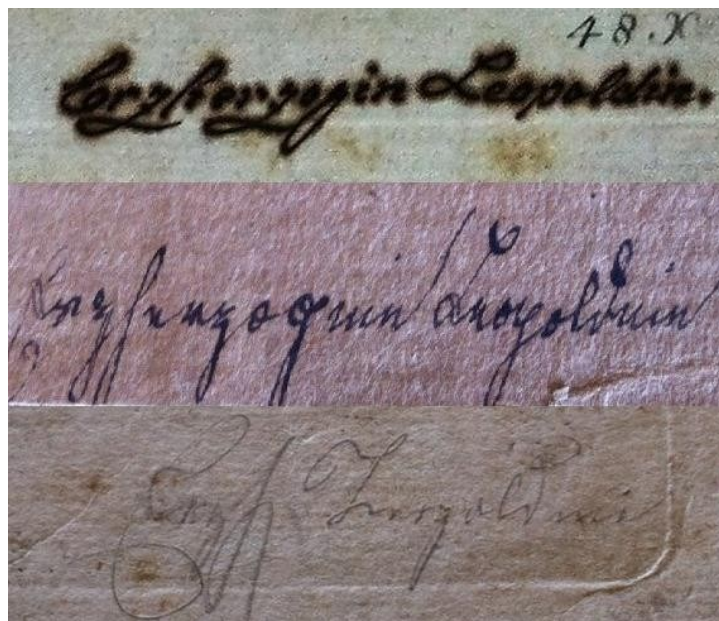 48.X
Erzherzogin Leopoldin.
Erzherzogin Leopoldin
Erzh Leopoldin